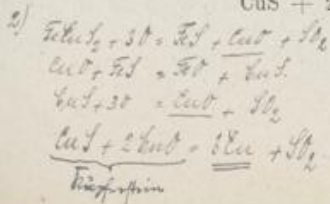 CuS +
2) FeCuS₂ + 3O = FeS + CuO + SO₂
CuO + FeS = FeO + CuS.
CuS + 3O = CuO + SO₂
CuS + 2CuO = 3Cu + SO₂.
Kupferstein